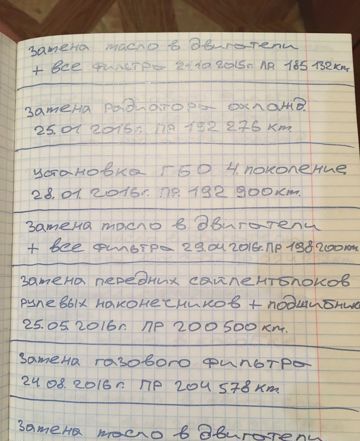 Замена масло в двигатели
+ все фильтра 21.10.2015г. ПР 185 132 км.
Замена радиатора охлажд.
25.01 2016г. ПР 192 276 км
Установка ГБО 4 поколение
28.01 2016г. ПР. 192 900 км.
Замена масло в двигатели
+ все фильтра 29.04.2016г. ПР 198 200 км
Замена передних сайлентблоков
рулевых наконечников + подшибник
25.05 2016г. ПР 200 500 км.
Замена газового фильтра
24 08. 2016г. ПР 204 578 км
Замена масло в двигатели